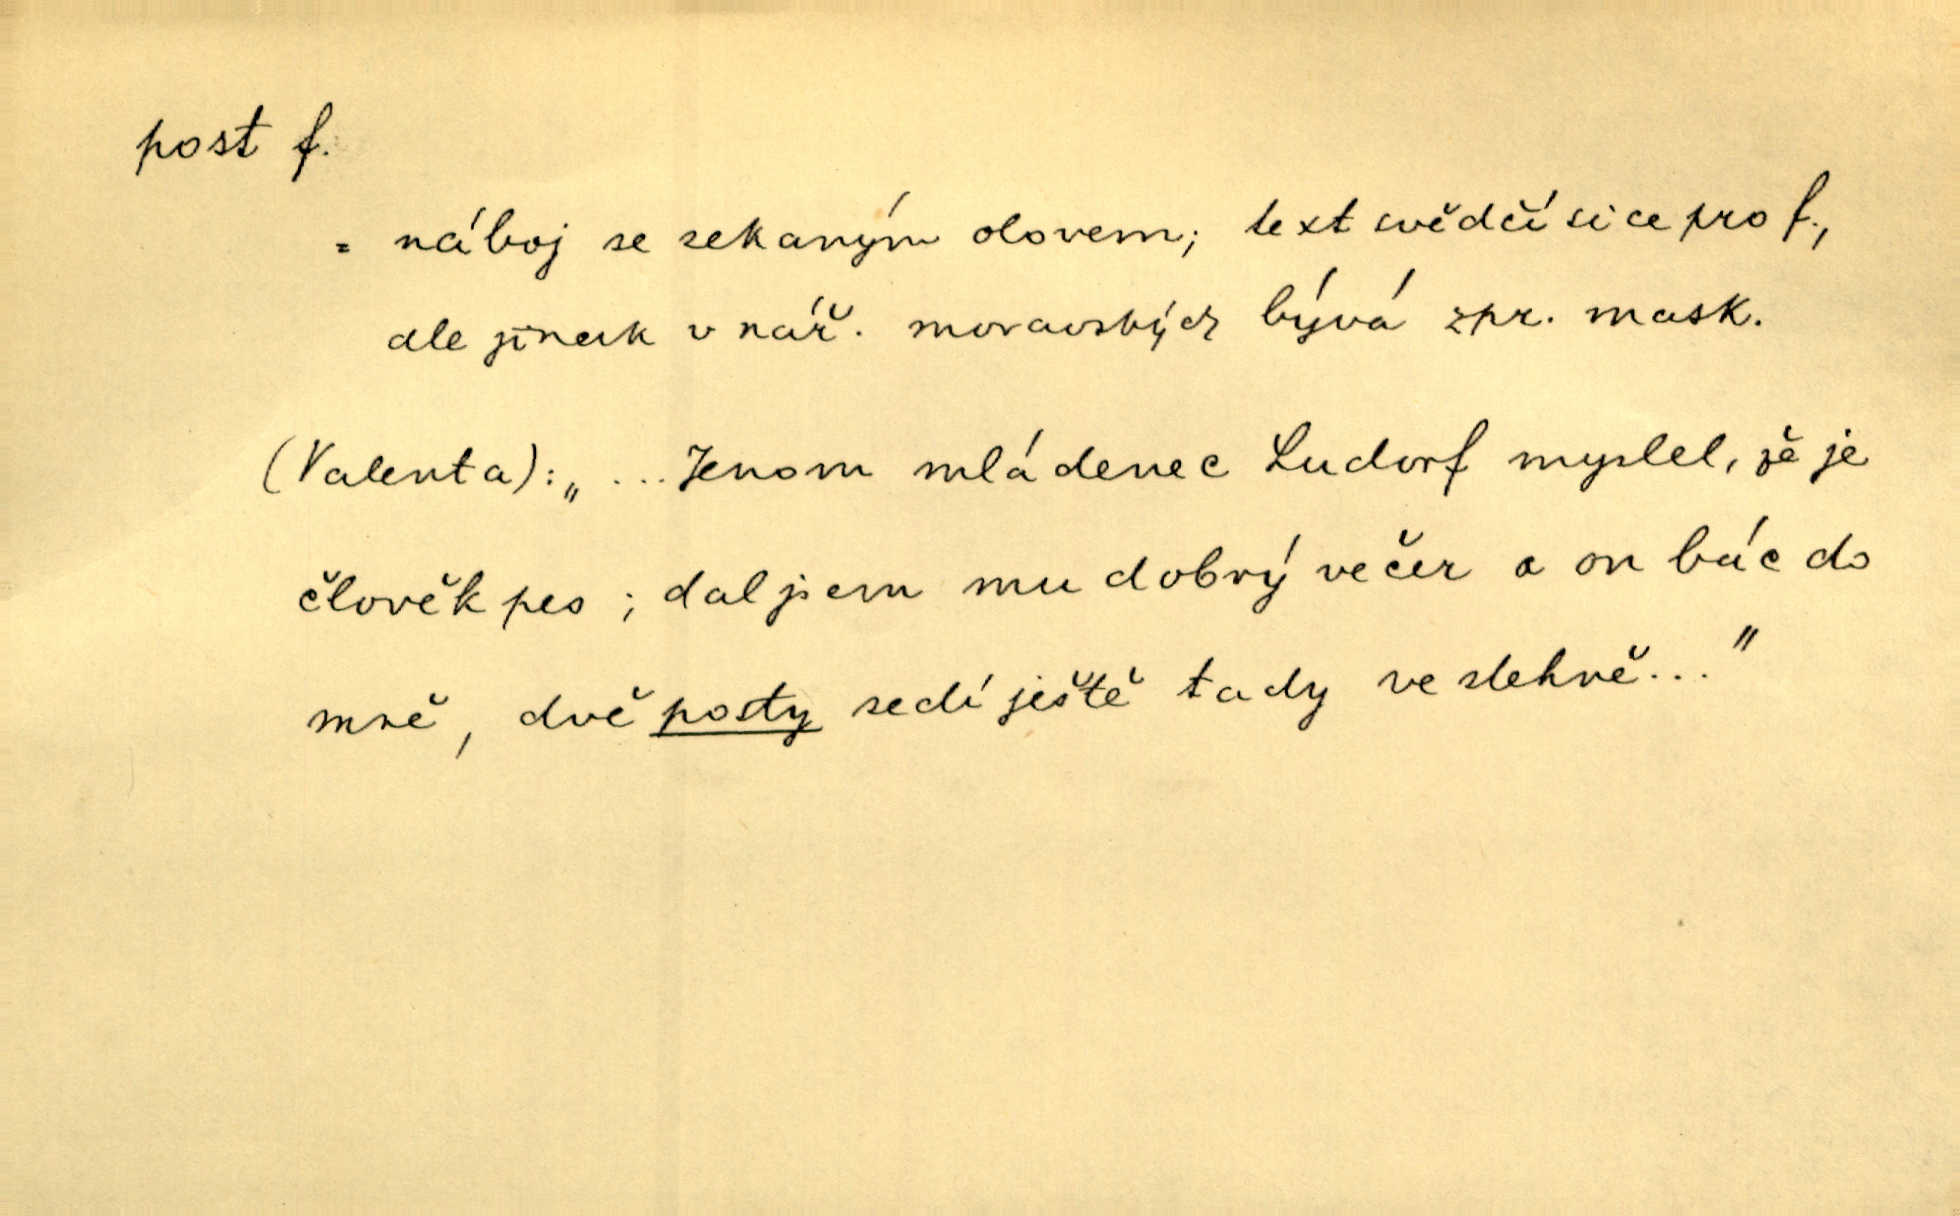 post f.
= náboj se sekaným olovem; text svědčí sice pro f.,
ale jinak v nář. moravských bývá zpr. mask.
(Valenta): „ ... Jenom mládenec Ludorf myslel, že je
člověk pes ; dal jsem mu dobrý večer a on bác do
mně, dvě posty sedí ještě tady ve slehně..."